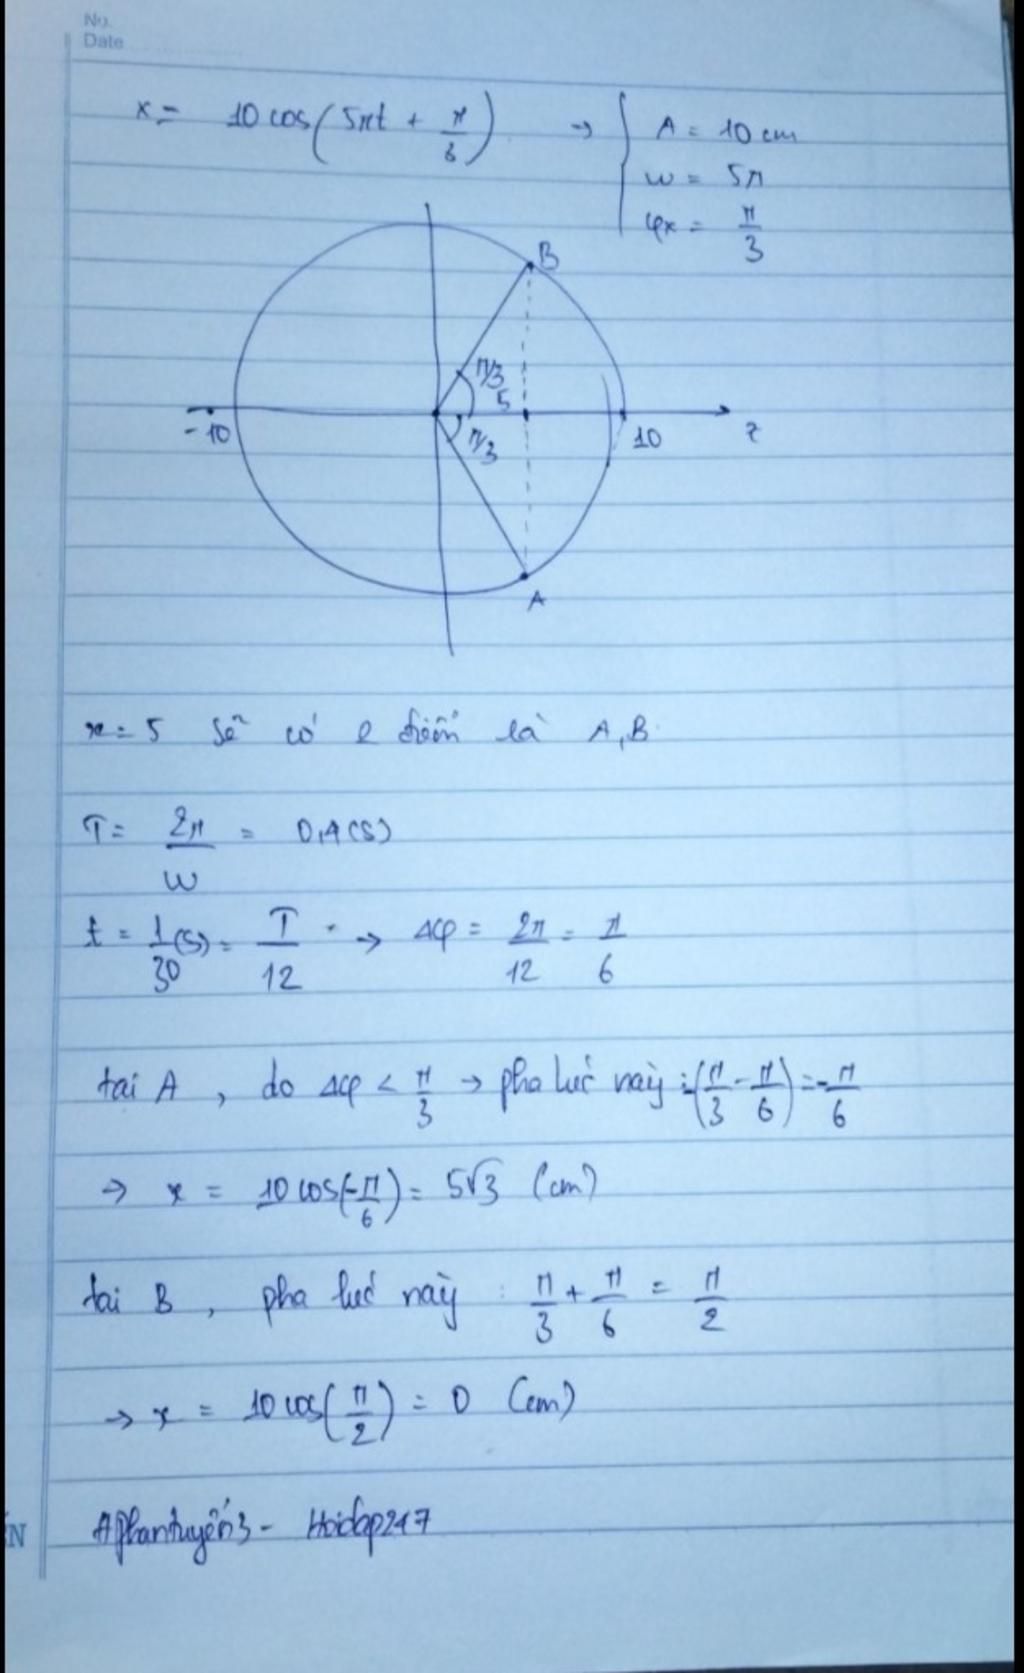 No.
Date
x = 10 cos(5πt + π/3) → { A = 10 cm
ω = 5π
φx = π/3
B
π/3
5
-10
π/3
10
A
x = 5 sẽ có 2 điểm là A, B.
T = 2π/ω = 0,4 (s)
t = 1/30 (s) = T/12 → Δφ = 2π/12 = π/6
tại A, do Δφ < π/3 → pha lúc này : -(π/3 - π/6) = -π/6
→ x = 10 cos(-π/6) = 5√3 (cm)
tại B, pha lúc này : π/3 + π/6 = π/2
→ x = 10 cos(π/2) = 0 (cm)
Aphantuyến3 - Hoidap247